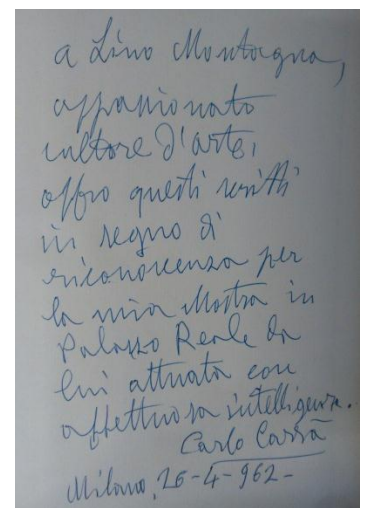 a Lino Montagna,
appassionato
cultore d'arte,
offro questi scritti
in segno di
riconoscenza per
la mia Mostra in
Palazzo Reale da
lui attuata con
affettuosa intelligenza.
Carlo Carrà
Milano, 26-4-962-